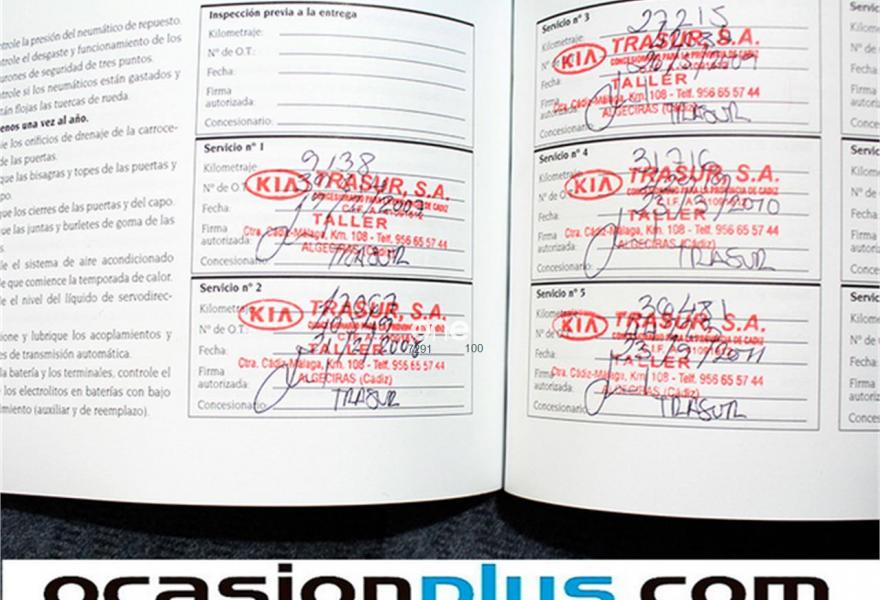 ntrole la presión del neumático de repuesto.
ntrole el desgaste y funcionamiento de los
urones de seguridad de tres puntos.
ntrole si los neumáticos están gastados y
tán flojas las tuercas de rueda.
enos una vez al año.
ie los orificios de drenaje de la carroce-
de las puertas.
que las bisagras y topes de las puertas y
po.
que los cierres de las puertas y del capo.
ue las juntas y burletes de goma de las
s.
le el sistema de aire acondicionado
e que comience la temporada de calor.
e el nivel del líquido de servodirec-
ione y lubrique los acoplamientos y
es de transmisión automática.
la batería y los terminales, controle el
e los electrolitos en baterías con bajo
imiento (auxiliar y de reemplazo).
Inspección previa a la entrega
Kilometraje:
Nº de O.T.:
Fecha:
Firma
autorizada:
Concesionario:
Servicio nº 1
Kilometraje 9138
Nº de O.T.
KIA TRASUR, S.A.
Fecha:
TALLER
Firma
autorizada:
Ctra. Cádiz-Málaga, Km. 108 - Telf. 956 65 57 44
ALGECIRAS (Cádiz)
Concesionario: TRASUR
Servicio nº 2
Kilometraje
KIA TRASUR, S.A.
Nº de O.T.:
Fecha:
TALLER
Firma
autorizada:
Ctra. Cádiz-Málaga, Km. 108 - Telf. 956 65 57 44
ALGECIRAS (Cádiz)
Concesionario: TRASUR
Servicio nº 3
Kilometraje: 27215
KIA TRASUR, S.A.
Nº de O.T.
CONCESIONARIO PARA LA PROVINCIA DE CADIZ
Fecha:
TALLER
Firma
autorizada:
Ctra. Cádiz-Málaga, Km. 108 - Telf. 956 65 57 44
ALGECIRAS (Cádiz)
Concesionario: TRASUR
Servicio nº 4
Kilometraje: 31716
KIA TRASUR, S.A.
Nº de O.T.
CONCESIONARIO PARA LA PROVINCIA DE CADIZ
Fecha:
TALLER
Firma
autorizada:
Ctra. Cádiz-Málaga, Km. 108 - Telf. 956 65 57 44
ALGECIRAS (Cádiz)
Concesionario: TRASUR
Servicio nº 5
Kilometraje: 36481
KIA TRASUR, S.A.
Nº de O.T.
Fecha:
TALLER
Firma
autorizada:
Ctra. Cádiz-Málaga, Km. 108 - Telf. 956 65 57 44
ALGECIRAS (Cádiz)
Concesionario: TRASUR
Servic
Kilom
Nº de
Fecha
Firma
autoriz
Conce
Servic
Kilom
Nº de
Fecha
Firma
autoriz
Conce
Servic
Kilom
Nº de
Fecha
Firma
autoriz
Conce
one
7291 100
ocasionplus.com